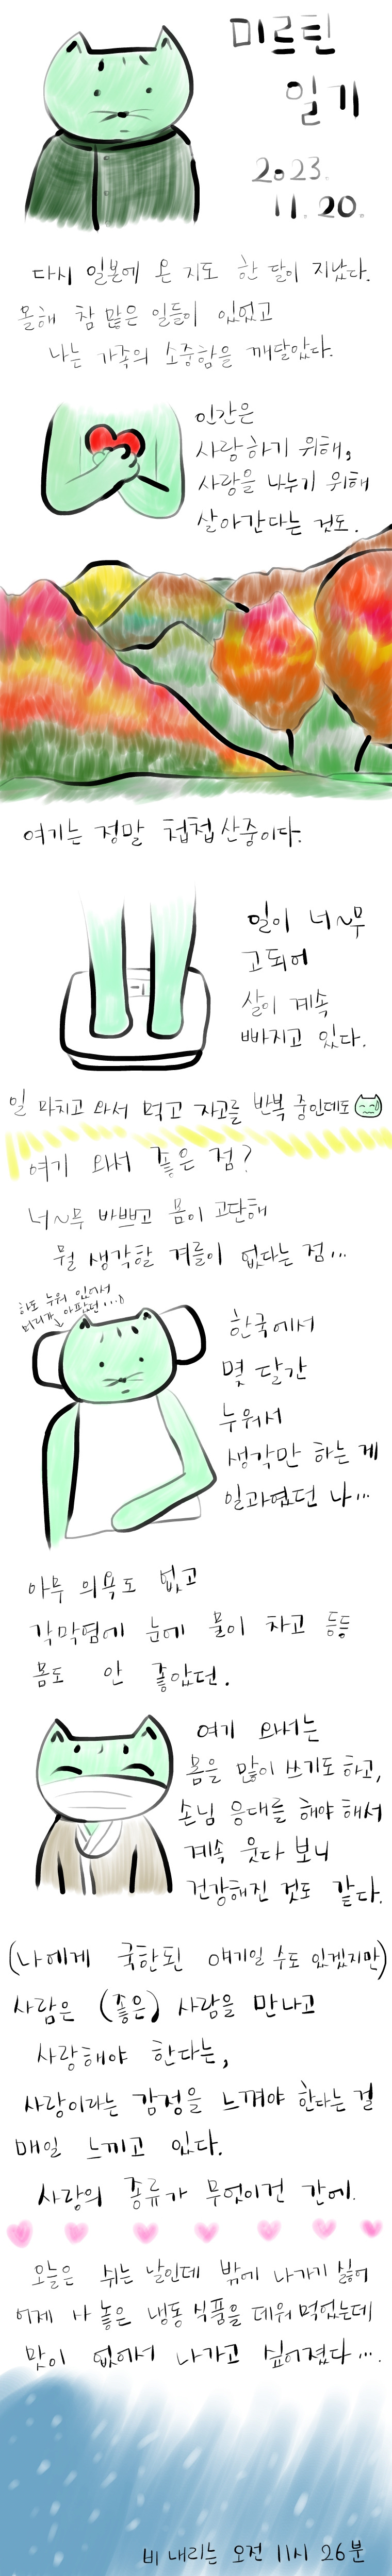 미르틴
일기
2023.
11. 20.
다시 일본에 온 지도 한 달이 지났다.
올해 참 많은 일들이 있었고
나는 가족의 소중함을 깨달았다.
인간은
사랑하기 위해,
사랑을 나누기 위해
살아간다는 것도.
여기는 정말 첩첩산중이다.
일이 너~무
고되어
살이 계속
빠지고 있다.
일 마치고 와서 먹고 자고를 반복 중인데도
여기 와서 좋은 점?
너~무 바쁘고 몸이 고단해
뭘 생각할 겨를이 없다는 점...
하도 누워 있어서
머리가 아팠던...
한국에서
몇 달간
누워서
생각만 하는 게
일과였던 나...
아무 의욕도 없고
각막염에 눈에 물이 차고 등등
몸도 안 좋았던.
여기 와서는
몸을 많이 쓰기도 하고,
손님 응대를 해야 해서
계속 웃다 보니
건강해진 것도 같다.
(나에게 국한된 얘기일 수도 있겠지만)
사람은 (좋은) 사람을 만나고
사랑해야 한다는,
사랑이라는 감정을 느껴야 한다는 걸
매일 느끼고 있다.
사랑의 종류가 무엇이건 간에.
오늘은 쉬는 날인데 밖에 나가기 싫어
어제 사 놓은 냉동 식품을 데워 먹었는데
맛이 없어서 나가고 싶어졌다....
비 내리는 오전 11시 26분